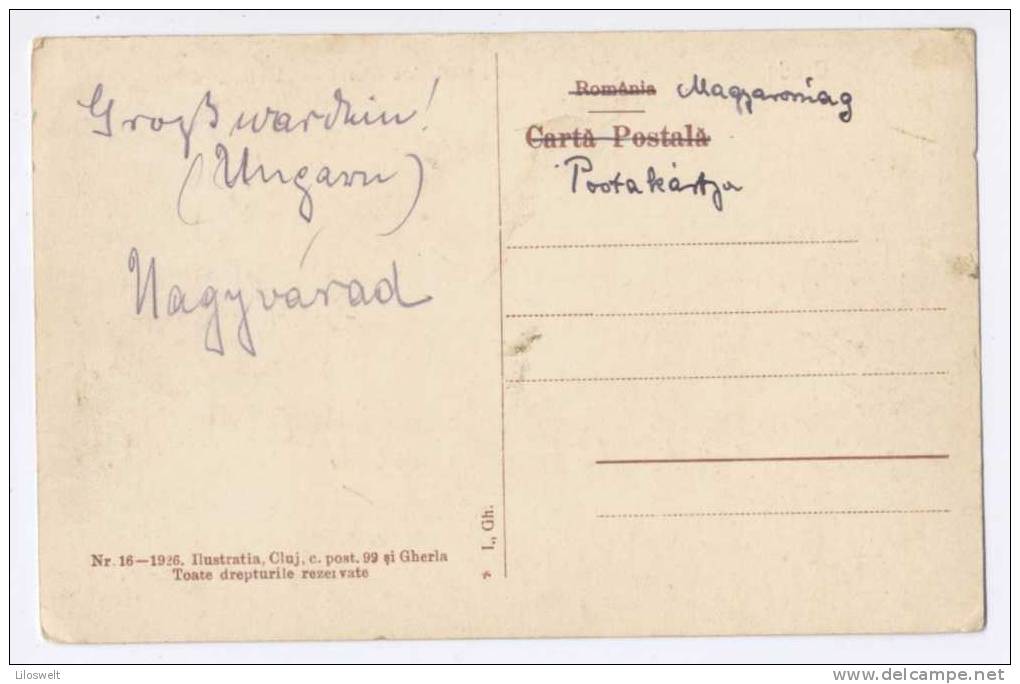 Großwardein!
(Ungarn)
Nagyvárad
România Magyarország
Carta Postală
Postakártya
Nr. 16—1926. Ilustratia, Cluj, c. post. 99 și Gherla
Toate drepturile rezervate
I., Gh.
Liloswelt
delcampe.net